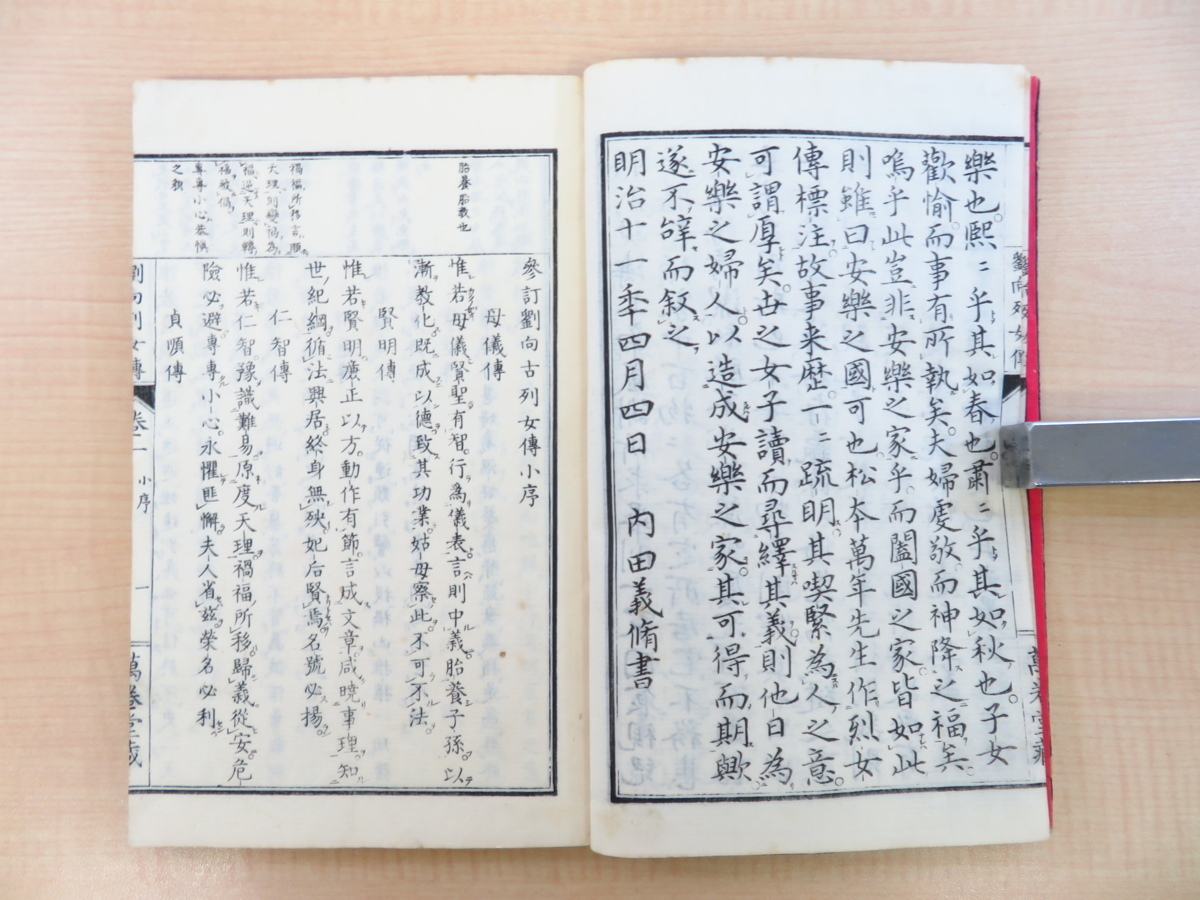 樂也。熙〻乎其如春也。肅〻乎其如秋也。子女
歡愉。而事有所執矣。夫婦處敬。而神降之福矣。
嗚乎此豈非安樂之家乎。而闔國之家。皆如此
則雖曰安樂之國可也。松本萬年先生作烈女
傳標注。故事来歴。一〻疏明。其喫緊為人之意。
可謂厚矣。世之女子讀而尋繹其義。則他日為
安樂之婦人。以造成安樂之家。其可得而期歟
遂不辭而叙之。
明治十一季四月四日 内田義脩書
劉向列女傳
萬卷堂藏
胎養胎教也
參訂劉向古列女傳小序
母儀傳
惟若母儀賢聖有智。行為儀表。言則中義。胎養子孫。以
漸教化。既成以德。致其功業。姑母察此。不可不法。
賢明傳
惟若賢明廉正以方。動作有節。言成文章。咸曉事理。知
世紀綱。循法興居。終身無殃。妃后賢焉。名號必揚。
仁智傳
惟若仁智豫識難易。原度天理。禍福所移。歸義從安。危
險必避。專專小心。永懼匪懈。夫人省茲。榮名必利。
貞順傳
禍福所移言順
天理則變禍為
福逆天理則轉
福成禍
專專小心恭慎
之貌
劉向列女傳 卷一 小序 一 萬卷堂藏